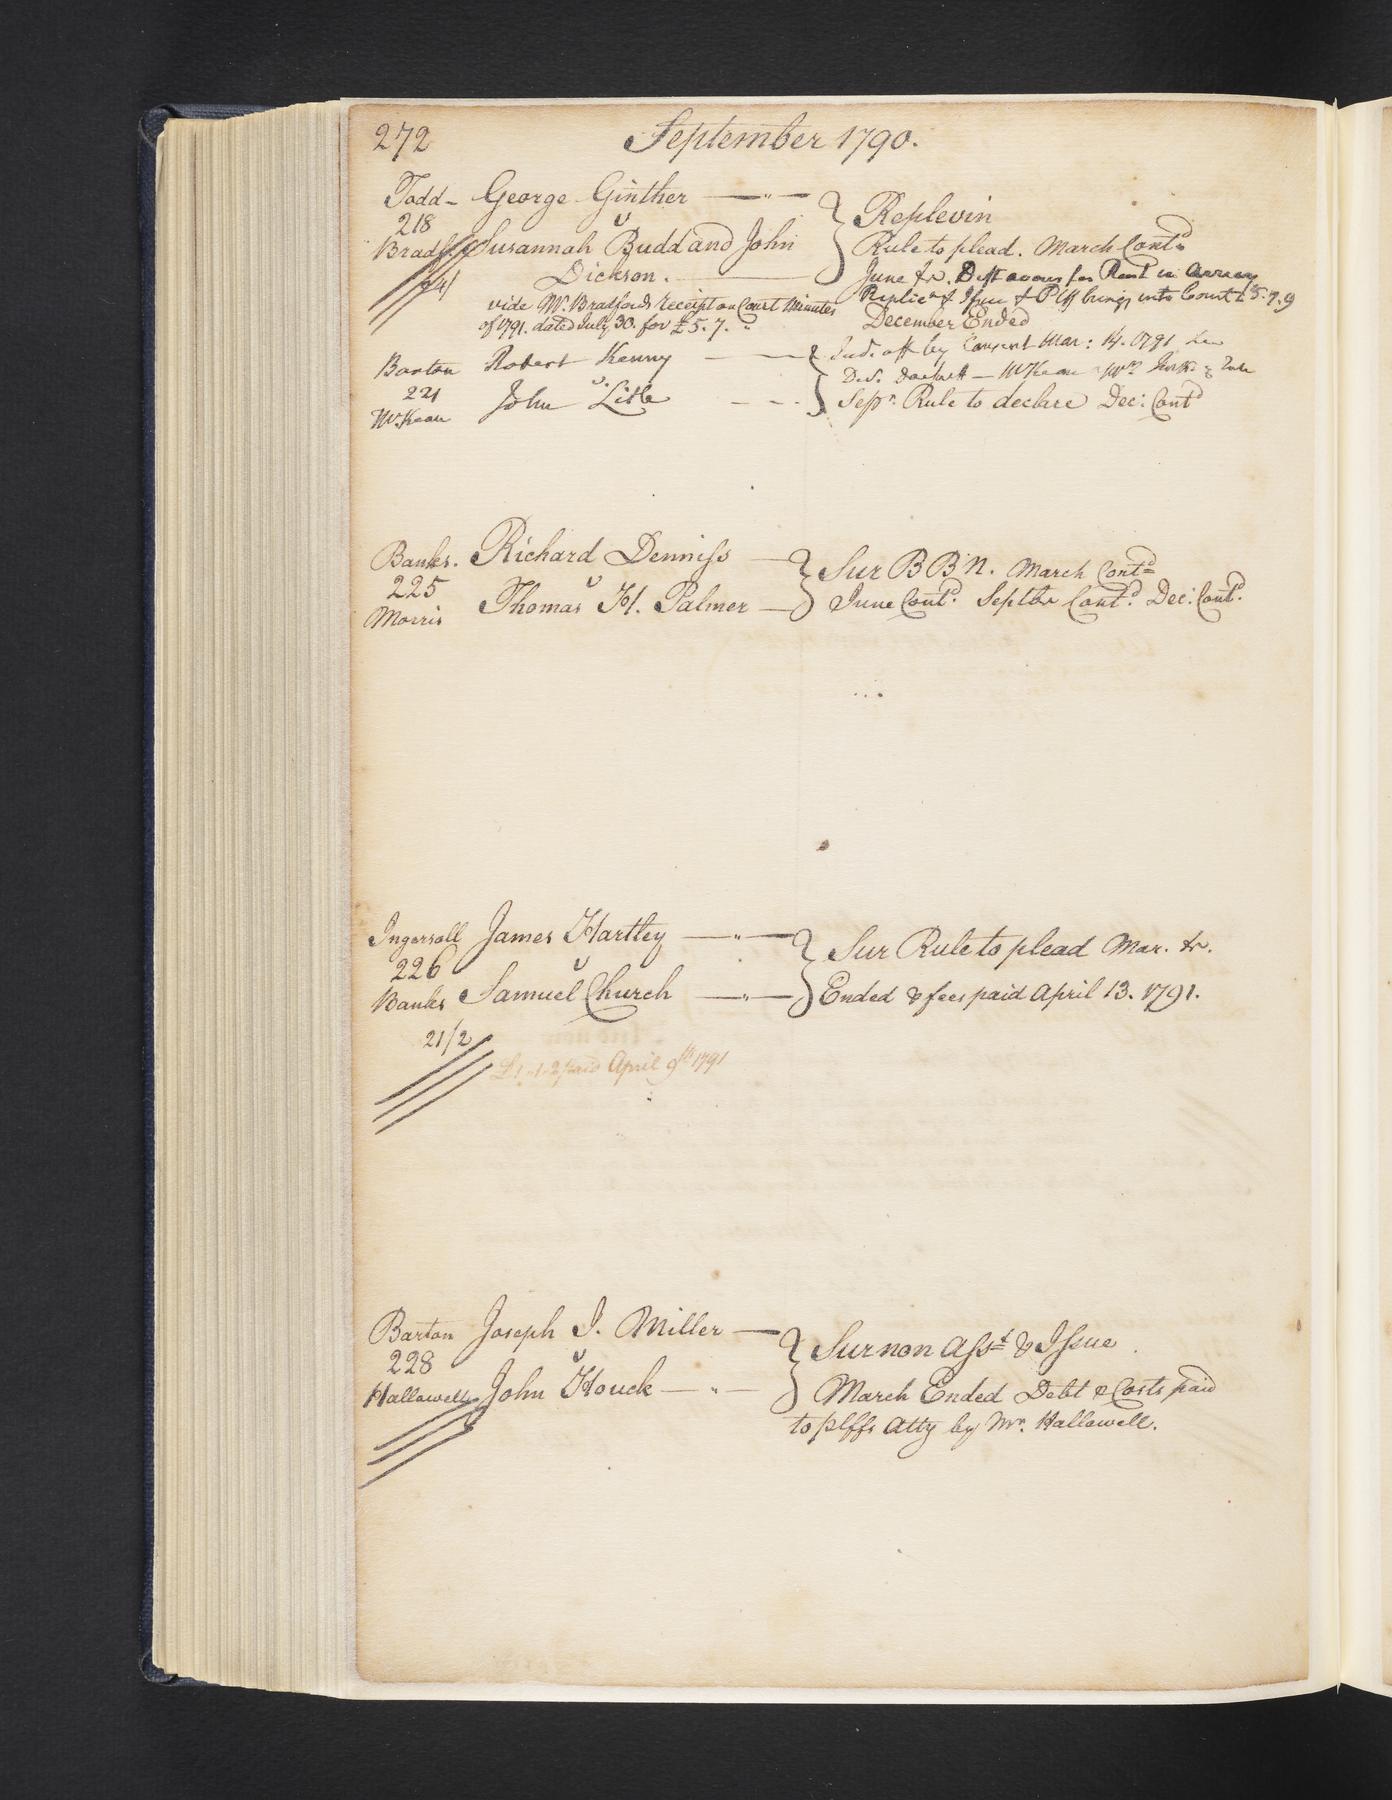 272 September 1790.
Todd - George Ginther
218 v
Bradfd Susannah Budd and John
Dickson.
Replevin
Rule to plead. March Contd
June &c. Deft avows for Rent in Arrear
Replicn & Issue & Plff brings into Court £5.7.9
December Ended
vide Mr. Bradfords receipt on Court Minutes
of 1791. dated July 30. for £5.7.
Barton Robert Kenny
221 v.
McKean John Litle
off by Consent Mar: 14. 1791
McKean
Sepr. Rule to declare Dec: Contd
Banks. Richard Denniss
225 v
Morris Thomas H. Palmer
Sur B B N. March Contd
June Contd. Septbr Contd. Dec: Contd.
Ingersoll James Hartley
226 v
Banks Samuel Church
Sur Rule to plead Mar. &c.
Ended & fees paid April 13. 1791.
21/2
£1-1-2 paid April 9th 1791
Barton Joseph I. Miller
228 v
Hallowell John Houck
Sur non Asst & Issue
March Ended Debt & Costs paid
to plffs Atty by Mr. Hallowell.